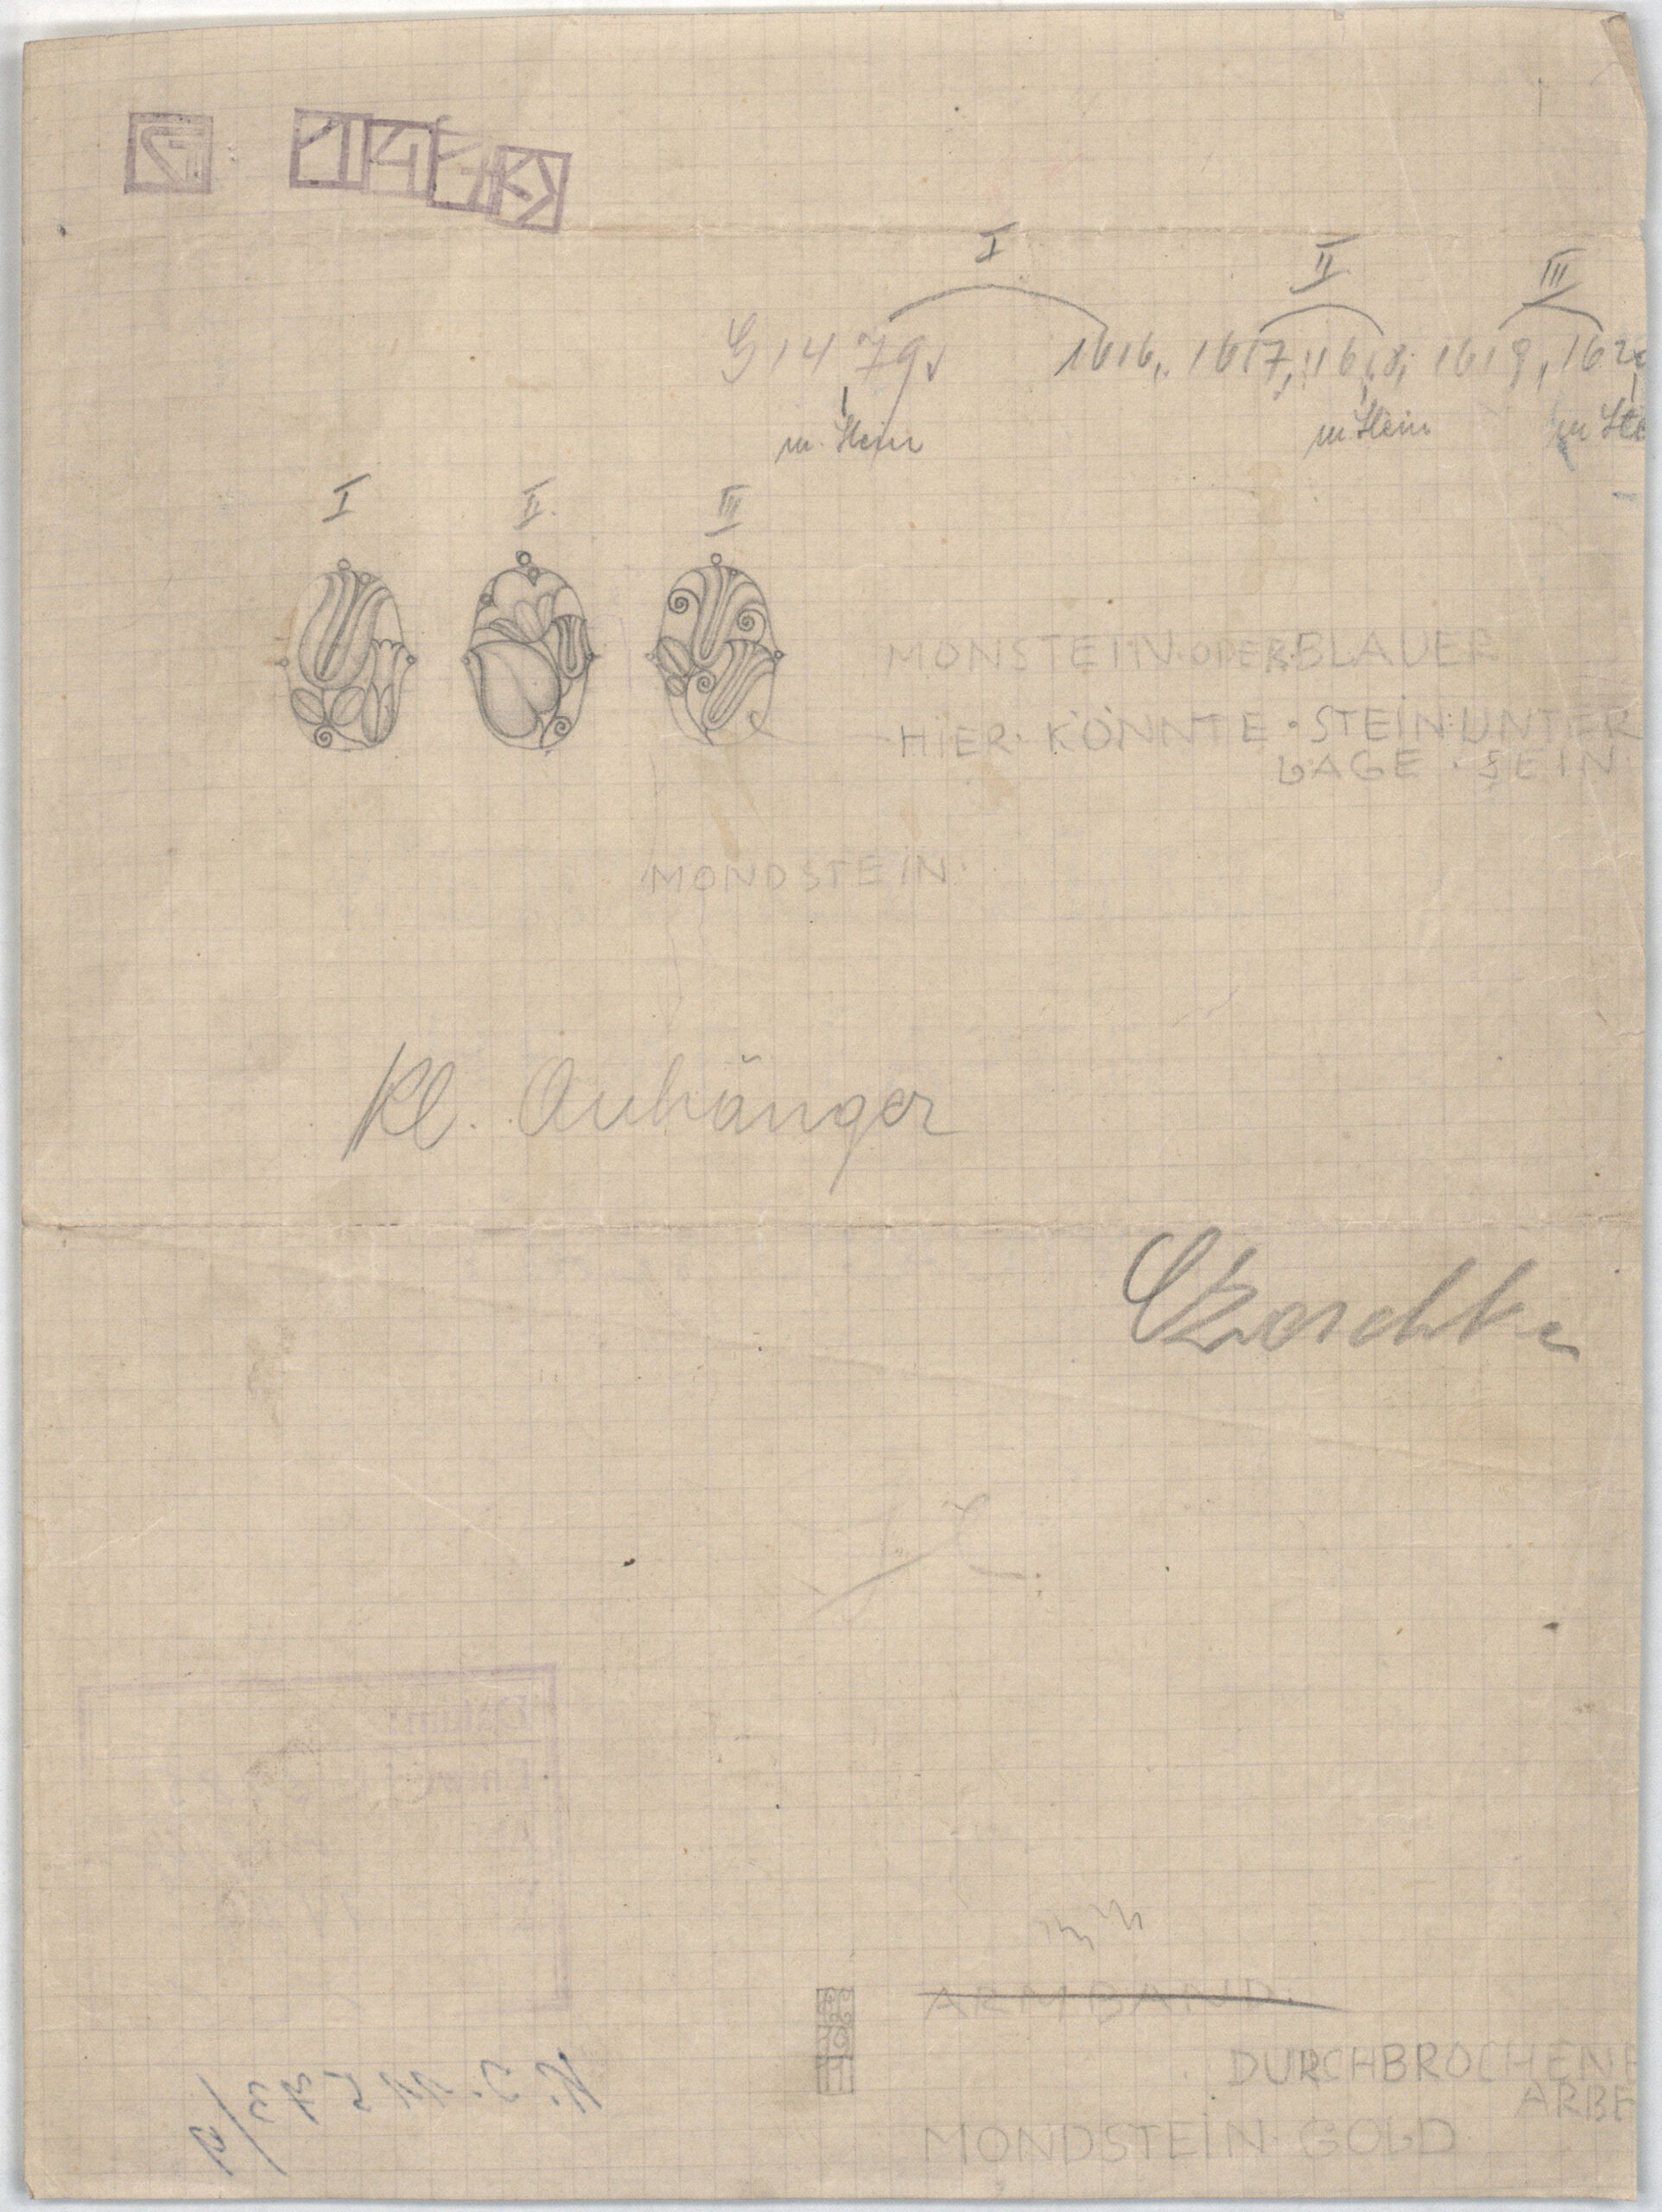 I
II
III
G 1479, 1616, 1617, 1618, 1619, 162
m. Stein
m Stein
m Ste
I
II.
III
MONSTEIN·ODER·BLAUER
HIER·KÖNNTE·STEIN:UNTER
LAGE·SEIN
MONDSTEIN·
Kl. Anhänger
ARMBAND.
DURCHBROCHENE
ARBE
MONDSTEIN·GOLD